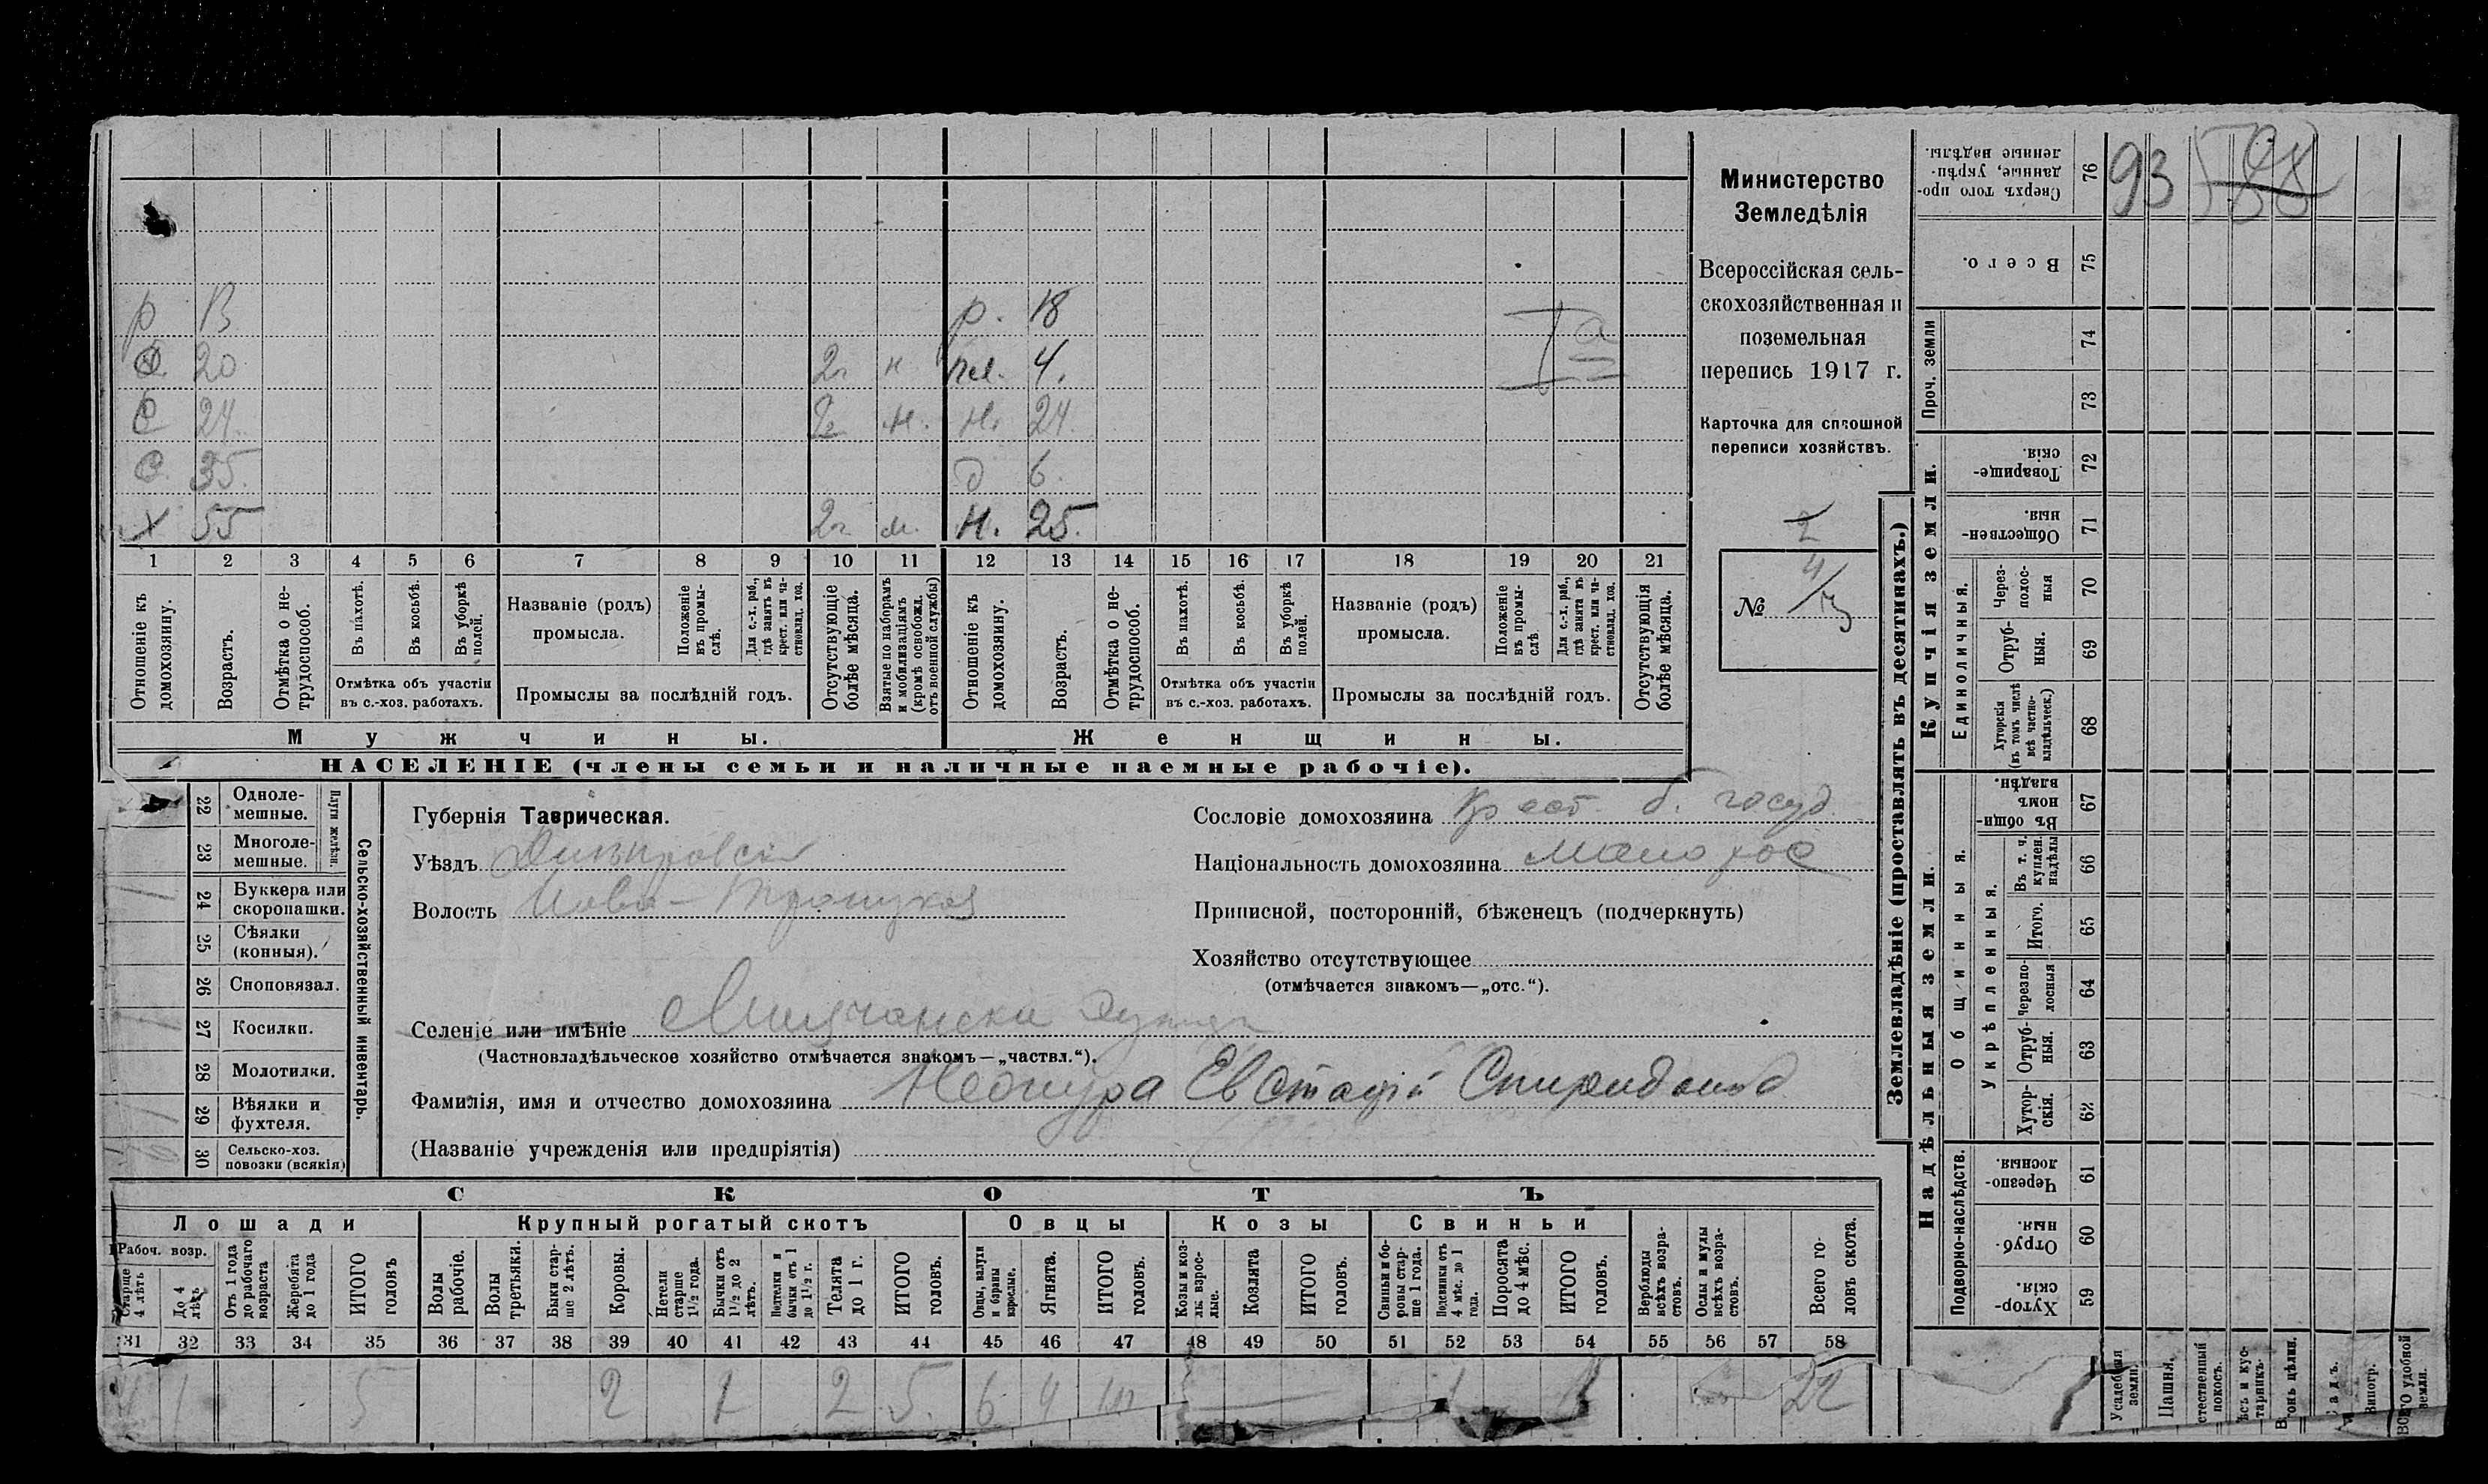 Министерство
Земледѣлія
Всероссійская сель-
скохозяйственная и
поземельная
перепись 1917 г.
Карточка для сплошной
переписи хозяйствъ.
№
р 13 р. 18
20 2 н пл. 4.
С 24 н. Н. 24
С. 35. д 6.
х 55 2 м. н. 25.
1 2 3 4 5 6 7 8 9 10 11 12 13 14 15 16 17 18 19 20 21
Отношеніе къ домохозяину.
Возрастъ.
Отмѣтка о не-трудоспособ.
Въ пахотѣ.
Въ косьбѣ.
Въ уборкѣ полей.
Отмѣтка объ участіи
въ с.-хоз. работахъ.
Названіе (родъ)
промысла.
Положеніе въ промы-слѣ.
Для с.-х. раб., гдѣ занятъ въ крест. или ча-стновлад. хоз.
Промыслы за послѣдній годъ.
Отсутствующіе болѣе мѣсяца.
Взятые по наборамъ и мобилизаціямъ (кромѣ освобожд. отъ военной службы)
Отношеніе къ домохозяину.
Возрастъ.
Отмѣтка о не-трудоспособ.
Въ пахотѣ.
Въ косьбѣ.
Въ уборкѣ полей.
Отмѣтка объ участіи
въ с.-хоз. работахъ.
Названіе (родъ)
промысла.
Положеніе въ промы-слѣ
Для с.-х. раб., гдѣ занята въ крест. или ча-стновлад. хоз.
Промыслы за послѣдній годъ.
Отсутствующія болѣе мѣсяца.
Мужчины.
Женщины.
НАСЕЛЕНІЕ (члены семьи и наличные наемные рабочіе).
22 Одноле-мешные.
23 Многоле-мешные.
Плуги желѣзн.
24 Буккера или скоропашки.
25 Сѣялки (конныя).
26 Сноповязал.
27 Косилки.
28 Молотилки.
29 Вѣялки и фухтеля.
30 Сельско-хоз. повозки (всякія)
Сельско-хозяйственный инвентарь.
Губернія Таврическая.
Уѣздъ Днѣпровск
Волость Ново-Троицкая
Селеніе или имѣніе
(Частновладѣльческое хозяйство отмѣчается знакомъ—„частвл.“).
Фамилія, имя и отчество домохозяина Евстафій Спиридонов
(Названіе учрежденія или предпріятія)
Сословіе домохозяина Крест. б. госуд.
Національность домохозяина малорос
Приписной, посторонній, бѣженецъ (подчеркнуть)
Хозяйство отсутствующее
(отмѣчается знакомъ—„отс.“).
СКОТЪ
Лошади
Крупный рогатый скотъ
Овцы
Козы
Свиньи
Рабоч. возр.
Старше 4 лѣтъ
До 4 лѣтъ
Отъ 1 года до рабочаго возраста
Жеребята до 1 года
ИТОГО головъ
Волы рабочіе.
Волы третьяки.
Быки стар-ше 2 лѣтъ.
Коровы.
Нетели старше 1½ года.
Бычки отъ 1½ до 2 лѣтъ.
Подтелки и бычки отъ 1 до 1½ г.
Телята до 1 г.
ИТОГО головъ.
Овцы, валухи и бараны взрослые.
Ягнята.
ИТОГО головъ.
Козы и коз-лы взрос-лые.
Козлята
ИТОГО головъ.
Свиньи и бо-ровы стар-ше 1 года.
Подсвинки отъ 4 мѣс. до 1 года.
Поросята до 4 мѣс.
ИТОГО головъ.
Верблюды всѣхъ возра-стовъ.
Ослы и мулы всѣхъ возра-стовъ.
Всего го-ловъ скота.
31 32 33 34 35 36 37 38 39 40 41 42 43 44 45 46 47 48 49 50 51 52 53 54 55 56 57 58
5 2 1 2 5. 6 4 1 22
Землевладѣніе (проставлять въ десятинахъ.)
Надѣльныя земли.
Купчія земли.
Проч. земли
Подворно-наслѣдств.
Общинныя.
Укрѣпленныя.
Единоличныя.
76 Сверхъ того про-данные, укрѣп-ленные надѣлы.
75 Всего.
74
73
72 Товарище-скія.
71 Обществен-ныя.
70 Через-полос-ныя
69 Отруб-ныя.
68 Хуторскія (въ томъ числѣ всѣ частно-владѣльческ.)
67 Въ общин-номъ владѣн.
66 Въ т. ч. куплен. надѣлы
65 Итого.
64 Черезпо-лосныя
63 Отруб-ныя.
62 Хутор-скія.
61 Черезпо-лосныя.
60 Отруб-ныя.
59 Хутор-скія.
93
Усадебная земля.
Пашня.
стественный покосъ.
ѣсъ и кус-тарникъ.
онь цѣлин.
Садъ.
Виногр.
ВСЕГО удобной земли.